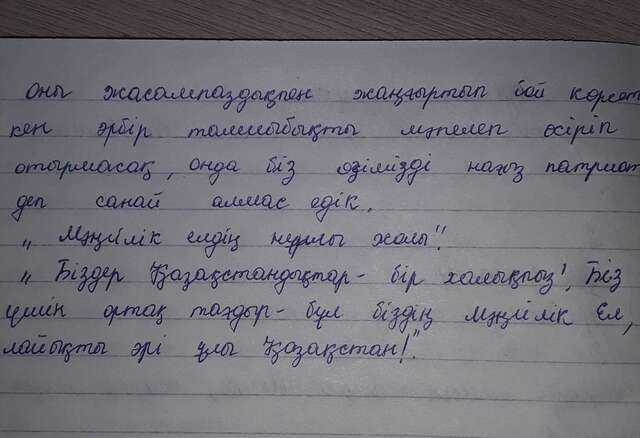 оны жасампаздықпен жаңғыртып бой көрсет
кен әрбір талшыбықты мәпелеп өсіріп
отырмасақ, онда біз өзімізді нағыз патриот
деп санай алмас едік.
„ Мәңгілік елдің нұрлы жолы"!
„ Біздер Қазақстандықтар - бір халықпыз!, Біз
үшін ортақ тағдыр - бұл біздің Мәңгілік Ел,
лайықты әрі ұлы Қазақстан!"